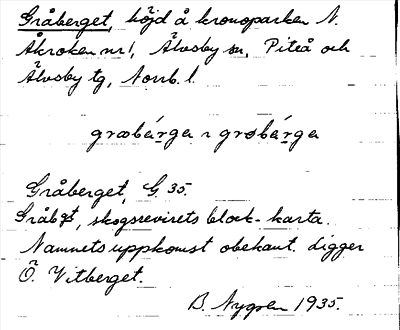 Gråberget, höjd å kronoparken N.
Åkroken nr 1, Älvsby sn, Piteå och
Älvsby tg, Norrb. l.
græbárga ~ grøbárga
Gråberget, G 35.
Gråbgt, skogsrevirets block-karta.
Namnets uppkomst obekant. Ligger
Ö. Vitberget.
B. Nygren 1935.